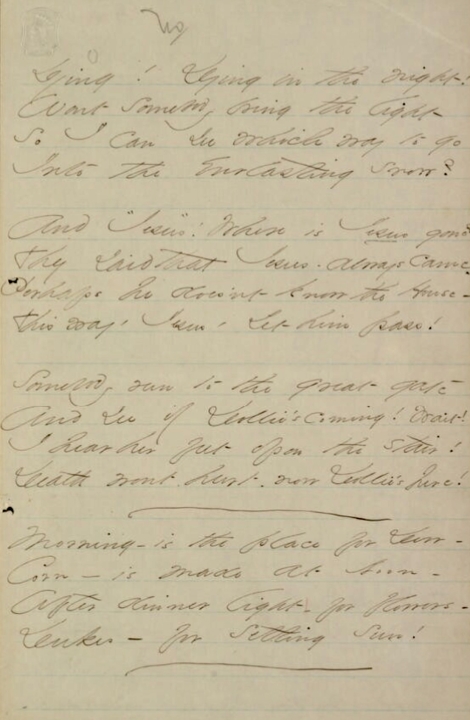 Dying! Dying in the night!
Wont somebody bring the light
So I can see which way to go
Into the Everlasting Snow?
And "Jesus"! Where is Jesus gone?
They said that Jesus - always came -
Perhaps he does'nt know the House -
This way, Jesus, Let him pass!
Somebody run to the great gate
And see if Dollie's coming! Wait!
I hear her feet opon the stair!
Death wont hurt - now Dollie's here!
Morning - is the place for Dew -
Corn - is made at Noon -
After dinner light - for flowers -
Dukes - for Setting Sun!